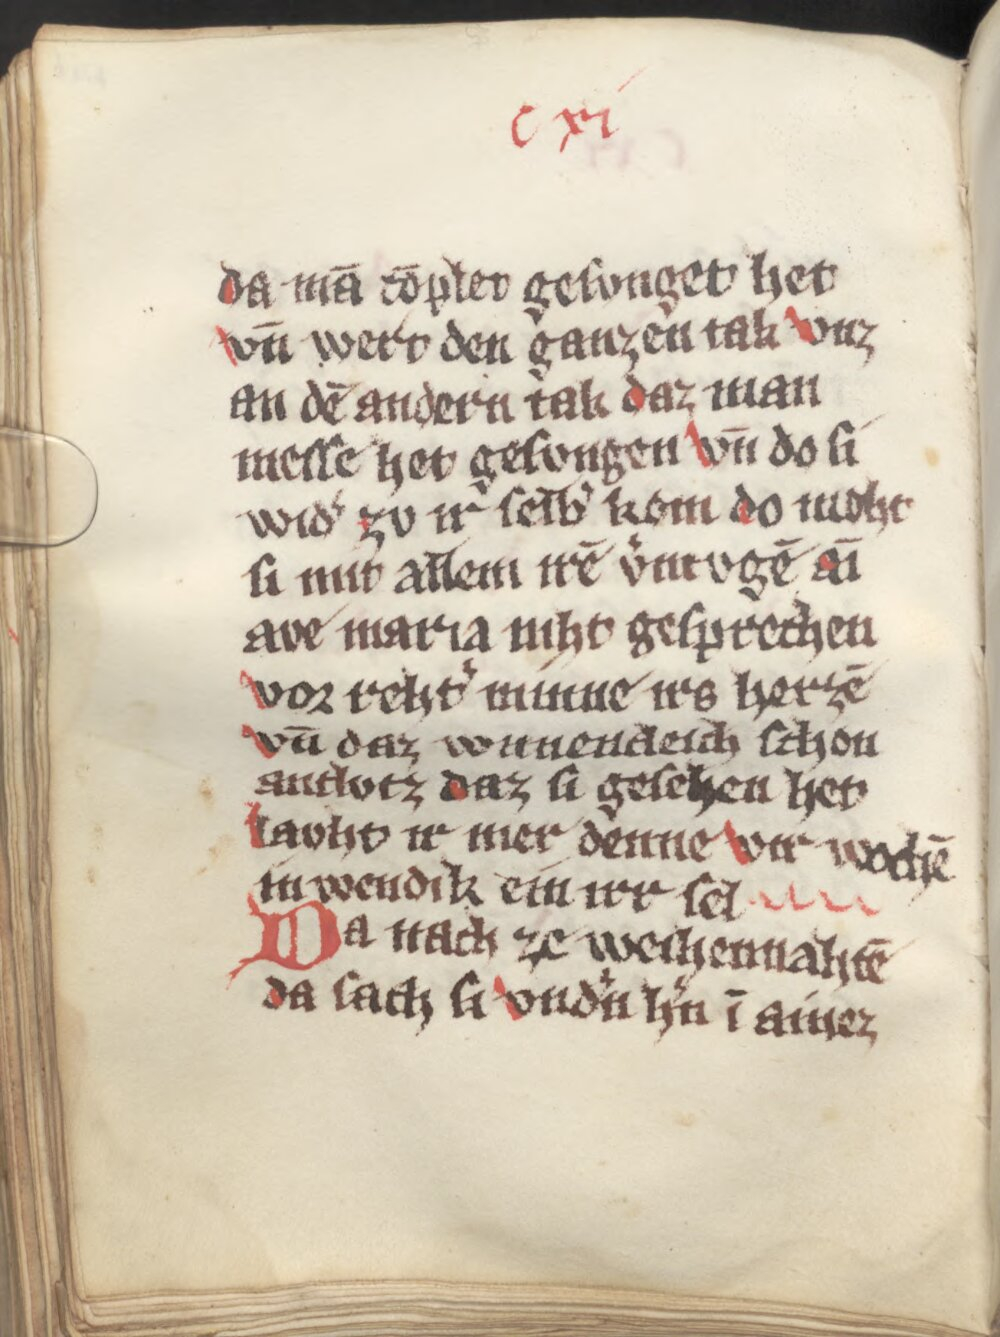 C xi
da mā cōplet gesunget het
vn̄ wert den ganzen tak vnz
an dē andern tak daz man
messe het gesungen vn̄ do si
wid᷑ zv ir selb᷑ kom do moht
si mit allem irē v᷑mvgē ai᷑n
ave maria niht gesprechen
vor reht᷑ minne irs herzē
vn̄ daz wunnencleich schon
antlvtz daz si gesehen het
lavht ir mer denne vir wochē
inwendik in irr sel
Da nach ze weihennahtē
da sach si vnd᷑n h᷑n ī ainez